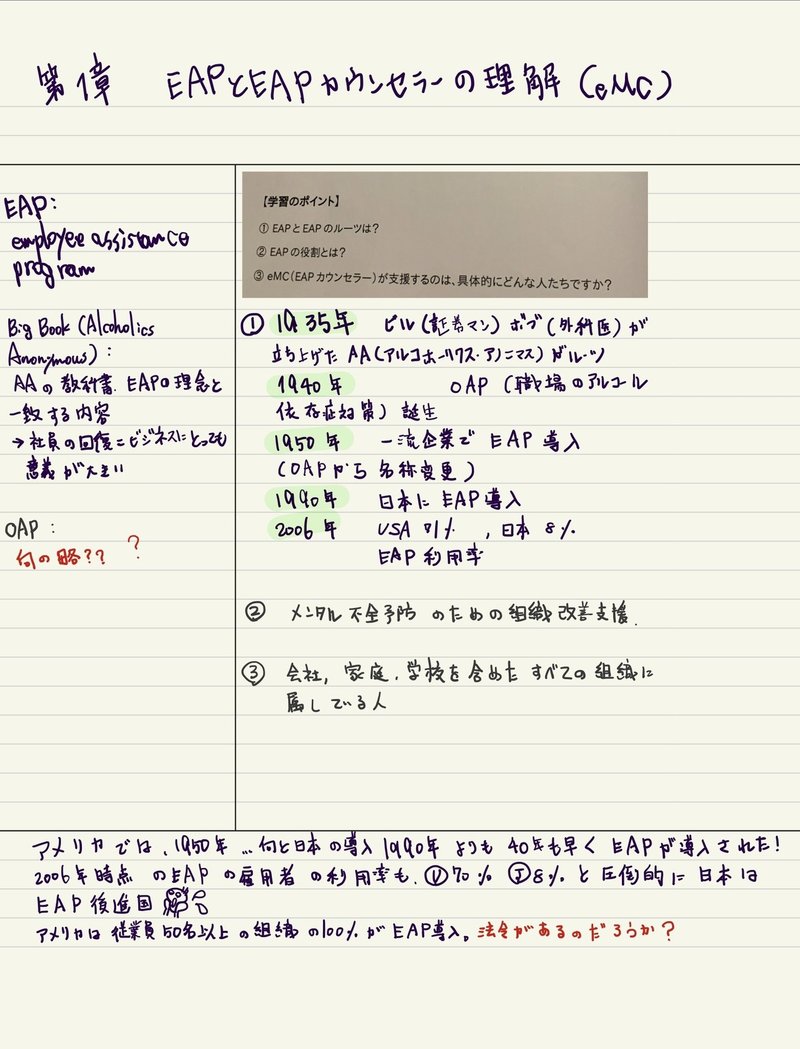 第1章 EAPとEAPカウンセラーの理解(eMC)
EAP:
employee assistance
program
Big Book (Alcoholics
Anonymous):
AAの教科書. EAPの理念と
一致する内容
→社員の回復=ビジネスにとっても
意義が大きい
OAP:
何の略?? ?
【学習のポイント】
① EAPとEAPのルーツは?
② EAPの役割とは?
③ eMC(EAPカウンセラー)が支援するのは、具体的にどんな人たちですか?
① 1935年 ビル(証券マン)ボブ(外科医)が
立ち上げたAA(アルコホーリクス・アノニマス)がルーツ
1940年 OAP(職場のアルコール
依存症対策)誕生
1950年 一流企業でEAP導入
(OAPから名称変更)
1990年 日本にEAP導入
2006年 USA 71%,日本8%
EAP利用率
② メンタル不全予防のための組織改善支援.
③ 会社,家庭,学校を含めたすべての組織に
属している人
アメリカでは、1950年…何と日本の導入1990年よりも40年も早くEAPが導入された!
2006年時点のEAPの雇用者の利用率も、Ⓤ70% Ⓙ8%と圧倒的に日本は
EAP後進国
アメリカは従業員50名以上の組織の100%がEAP導入。法令があるのだろうか?